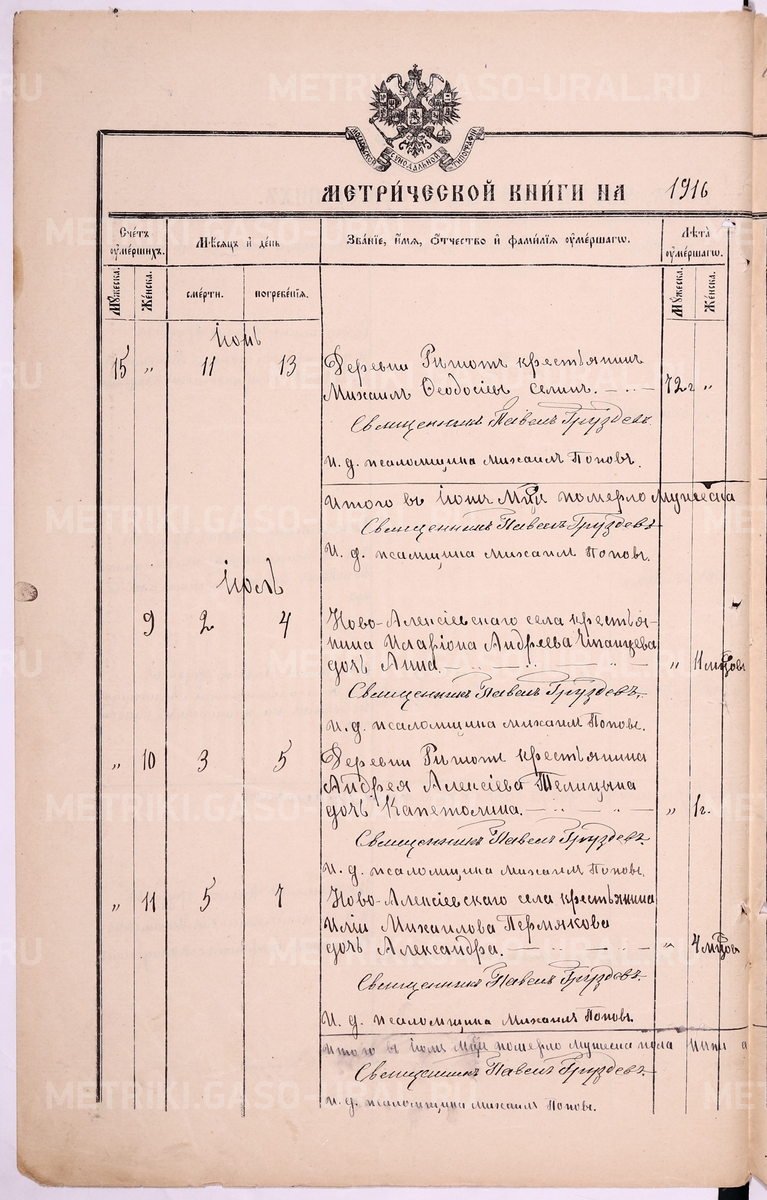 МОСКОВСКОЙ СѴНОДАЛЬНОЙ ТИПОГРАФІИ
МЕТРИ́ЧЕСКОЙ КНИ́ГИ НА 1916
Счетъ ᲂумершихъ.
Мѣсяцъ и день
Званіе, имя, отчество и фамилія ᲂумершагѡ.
Лѣта ᲂумершагѡ.
Мꙋжеска.
Женска.
смерти.
погребенія.
Мꙋжеска.
Женска.
Іюнь
15 " 11 13 Деревни крестьянин
Михаилъ Ѳеодосіевъ Селинъ. 72 г "
Священникъ Павелъ Груздевъ.
И. д. псаломщика Михаилъ Поповъ.
Итого въ Іюнѣ м-цѣ померло мужеска
Священникъ Павелъ Груздевъ
И. д. псаломщика Михаилъ Поповъ.
Іюль
9 2 4 Ново-Алексіевскаго села крестья-
нина Иларіона Андреева
дочь Анна. " 11 м-цовъ
Священникъ Павелъ Груздевъ.
И. д. псаломщика Михаилъ Поповъ.
" 10 3 5 Деревни крестьянина
Андрея Алексіева Телицына
дочь Капетолина. " 1 г.
Священникъ Павелъ Груздевъ.
И. д. псаломщика Михаилъ Поповъ.
" 11 5 7 Ново-Алексіевскаго села крестьянина
Иліи Михаилова Пермякова
дочь Александра. " 4 м-цовъ
Священникъ Павелъ Груздевъ.
И. д. псаломщика Михаилъ Поповъ.
Итого въ Іюлѣ м-цѣ померло мужеска пола
Священникъ Павелъ Груздевъ.
И. д. псаломщика Михаилъ Поповъ.
METRIKI.GASO-URAL.RU